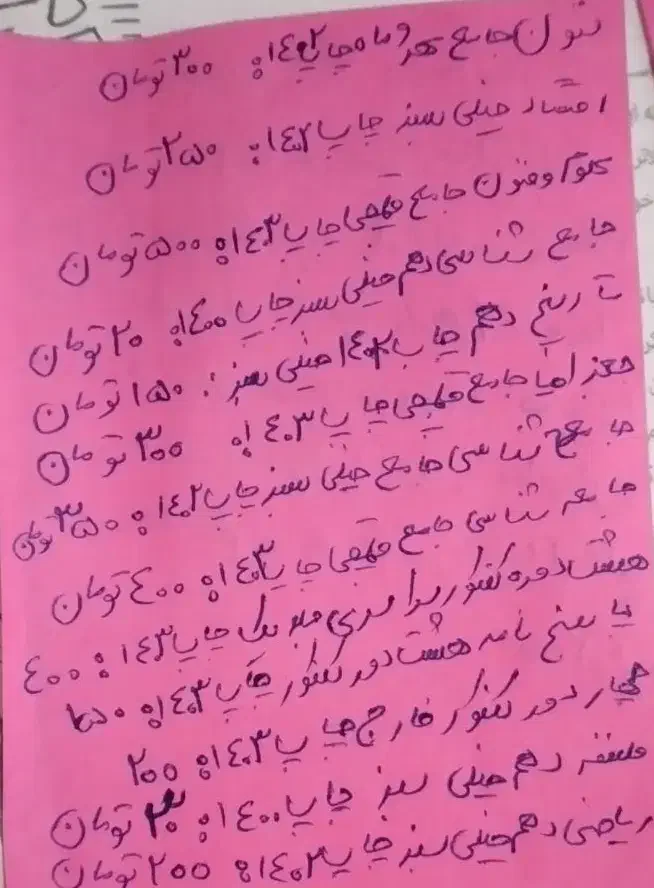 فنون جامع مهر و ماه چاپ ۱۴۰۲: ۳۰۰ تومان
اقتصاد خیلی سبز چاپ ۱۴۰۲: ۲۵۰ تومان
علوم و فنون جامع قلمچی چاپ ۱۴۰۳: ۵۰۰ تومان
جامع شناسی دهم خیلی سبز چاپ ۱۴۰۰: ۲۰ تومان
تاریخ دهم چاپ ۱۴۰۲ خیلی سبز: ۱۵۰ تومان
جغرافیا جامع قلمچی چاپ ۱۴۰۳: ۳۰۰ تومان
جامع شناسی جامع خیلی سبز چاپ ۱۴۰۲: ۳۵۰ تومان
جامعه شناسی جامع قلمچی چاپ ۱۴۰۳: ۴۰۰ تومان
هشت دوره کنکور سراسری چاپ ۱۴۰۳: ۴۰۰
پاسخ نامه هشت دور کنکور چاپ ۱۴۰۳:
چهار دور کنکور خارج چاپ ۱۴۰۳: ۲۰۰
دهم خیلی سبز چاپ ۱۴۰۰: تومان
ریاضی دهم خیلی سبز چاپ ۱۴۰۲: ۲۰۰ تومان